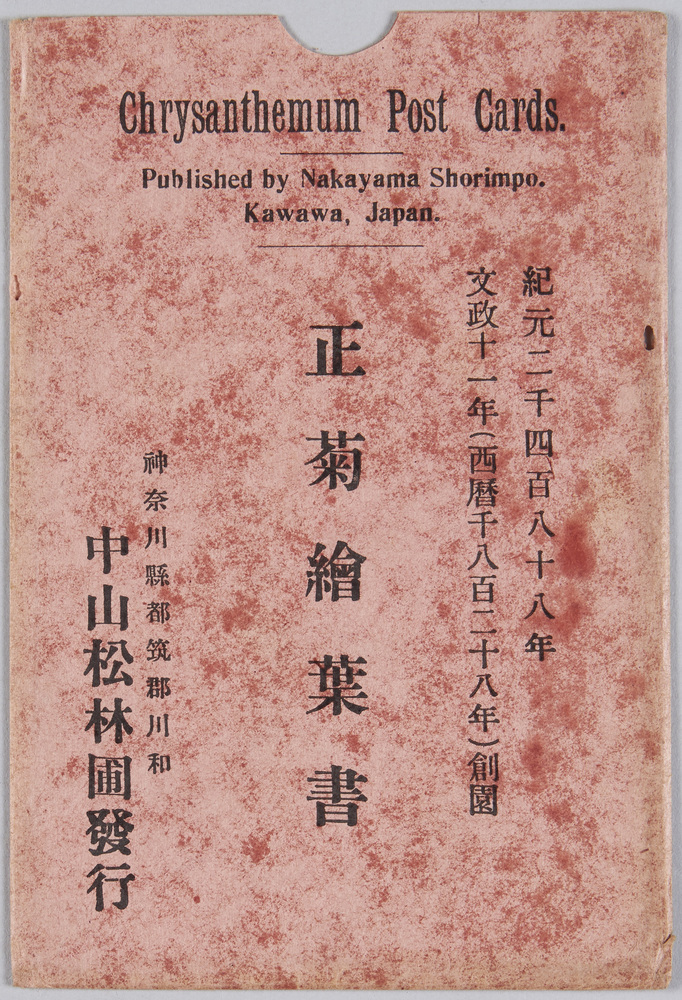 Chrysanthemum Post Cards.
Published by Nakayama Shorimpo.
Kawawa, Japan.
紀元二千四百八十八年
文政十一年(西暦千八百二十八年)創園
正菊繪葉書
神奈川縣都筑郡川和
中山松林圃發行